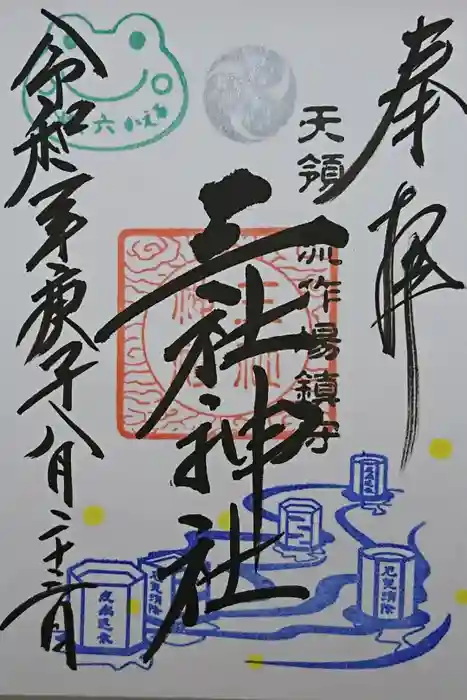 奉拝
天領 流作場鎮守
三社神社
令和第庚子八月二十二日
六 かえる
疫病退散
悪疫消除